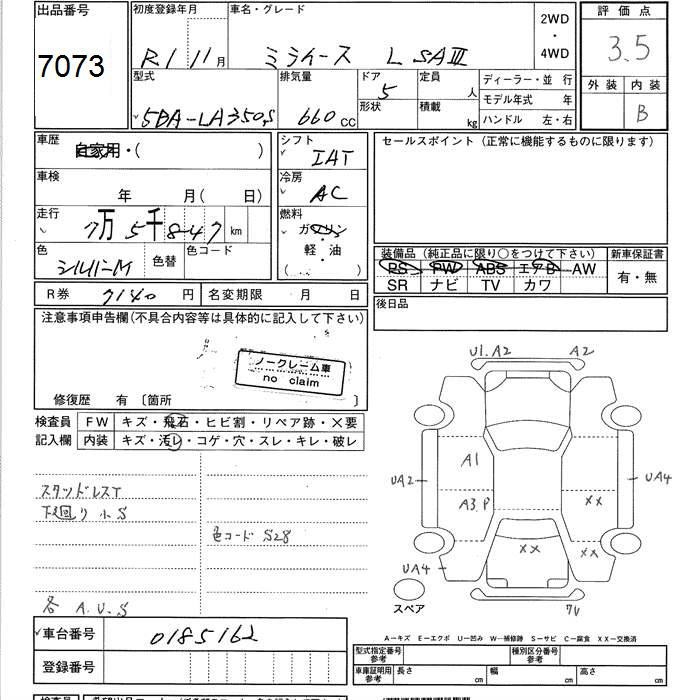 出品番号
7073
初度登録年月
R1 11月
車名・グレード
ミライース L SAⅢ
2WD
・
4WD
評価点
3.5
外装 内装
B
型式
5BA-LA350S
排気量
660 cc
ドア
5
形状
定員
人
積載
kg
ディーラー・並 行
モデル年式 年
ハンドル 左・右
車歴
自家用・( )
車検
年 月( 日)
走行
7万5千847 km
色
シルバーM
色替
色コード
シフト
IAT
冷房
AC
燃料
ガソリン
・
軽・油
( )
セールスポイント(正常に機能するものに限ります)
装備品(純正品に限り○をつけて下さい)
PS PW ABS エアB AW
SR ナビ TV カワ
新車保証書
有・無
後日品
R券 7140 円
名変期限 月 日
注意事項申告欄(不具合内容等は具体的に記入して下さい)
ノークレーム車
no claim
修復歴 有〔箇所 〕
検査員
記入欄
FW キズ・飛石・ヒビ割・リペア跡・×要
内装 キズ・汚レ・コゲ・穴・スレ・キレ・破レ
スタッドレスT
下廻り小S
色コード S28
各 A.U.S
U1.A2
A2
A1
UA2
A3.P
XX
UA4
XX
XX
UA4
スペア
車台番号 0185162
登録番号
A－キズ E－エクボ U－凹み W－補修跡 S－サビ C－腐食 XX－交換済
型式指定番号
参考
種別区分番号
参考
車庫証明用
参考
長さ cm
幅 cm
高さ cm